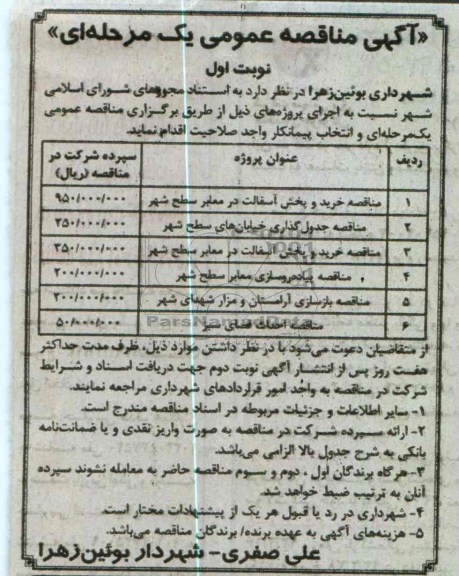 «آگهی مناقصه عمومی یک مرحله‌ای»
نوبت اول
شهرداری بوئین‌زهرا در نظر دارد به استناد مجوزهای شورای اسلامی
شهر نسبت به اجرای پروژه‌های ذیل از طریق برگزاری مناقصه عمومی
یک‌مرحله‌ای و انتخاب پیمانکار واجد صلاحیت اقدام نماید.
ردیف عنوان پروژه سپرده شرکت در مناقصه (ریال)
۱ مناقصه خرید و پخش آسفالت در معابر سطح شهر ۹۵۰/۰۰۰/۰۰۰
۲ مناقصه جدول‌گذاری خیابان‌های سطح شهر ۲۵۰/۰۰۰/۰۰۰
۳ مناقصه خرید و پخش آسفالت در معابر سطح شهر ۳۵۰/۰۰۰/۰۰۰
۴ مناقصه پیاده‌روسازی معابر سطح شهر ۲۰۰/۰۰۰/۰۰۰
۵ مناقصه بازسازی آرامستان و مزار شهدای شهر ۲۰۰/۰۰۰/۰۰۰
۶ مناقصه احداث فضای سبز ۵۰/۰۰۰/۰۰۰
از متقاضیان دعوت می‌شود با در نظر داشتن موارد ذیل، ظرف مدت حداکثر
هفت روز پس از انتشار آگهی نوبت دوم جهت دریافت اسناد و شرایط
شرکت در مناقصه به واحد امور قراردادهای شهرداری مراجعه نمایند.
۱- سایر اطلاعات و جزئیات مربوطه در اسناد مناقصه مندرج است.
۲- ارائه سپرده شرکت در مناقصه به صورت واریز نقدی و یا ضمانت‌نامه
بانکی به شرح جدول بالا الزامی می‌باشد.
۳- هرگاه برندگان اول، دوم و سوم مناقصه حاضر به معامله نشوند سپرده
آنان به ترتیب ضبط خواهد شد.
۴- شهرداری در رد یا قبول هر یک از پیشنهادات مختار است.
۵- هزینه‌های آگهی به عهده برنده/ برندگان مناقصه می‌باشد.
علی صفری- شهردار بوئین‌زهرا